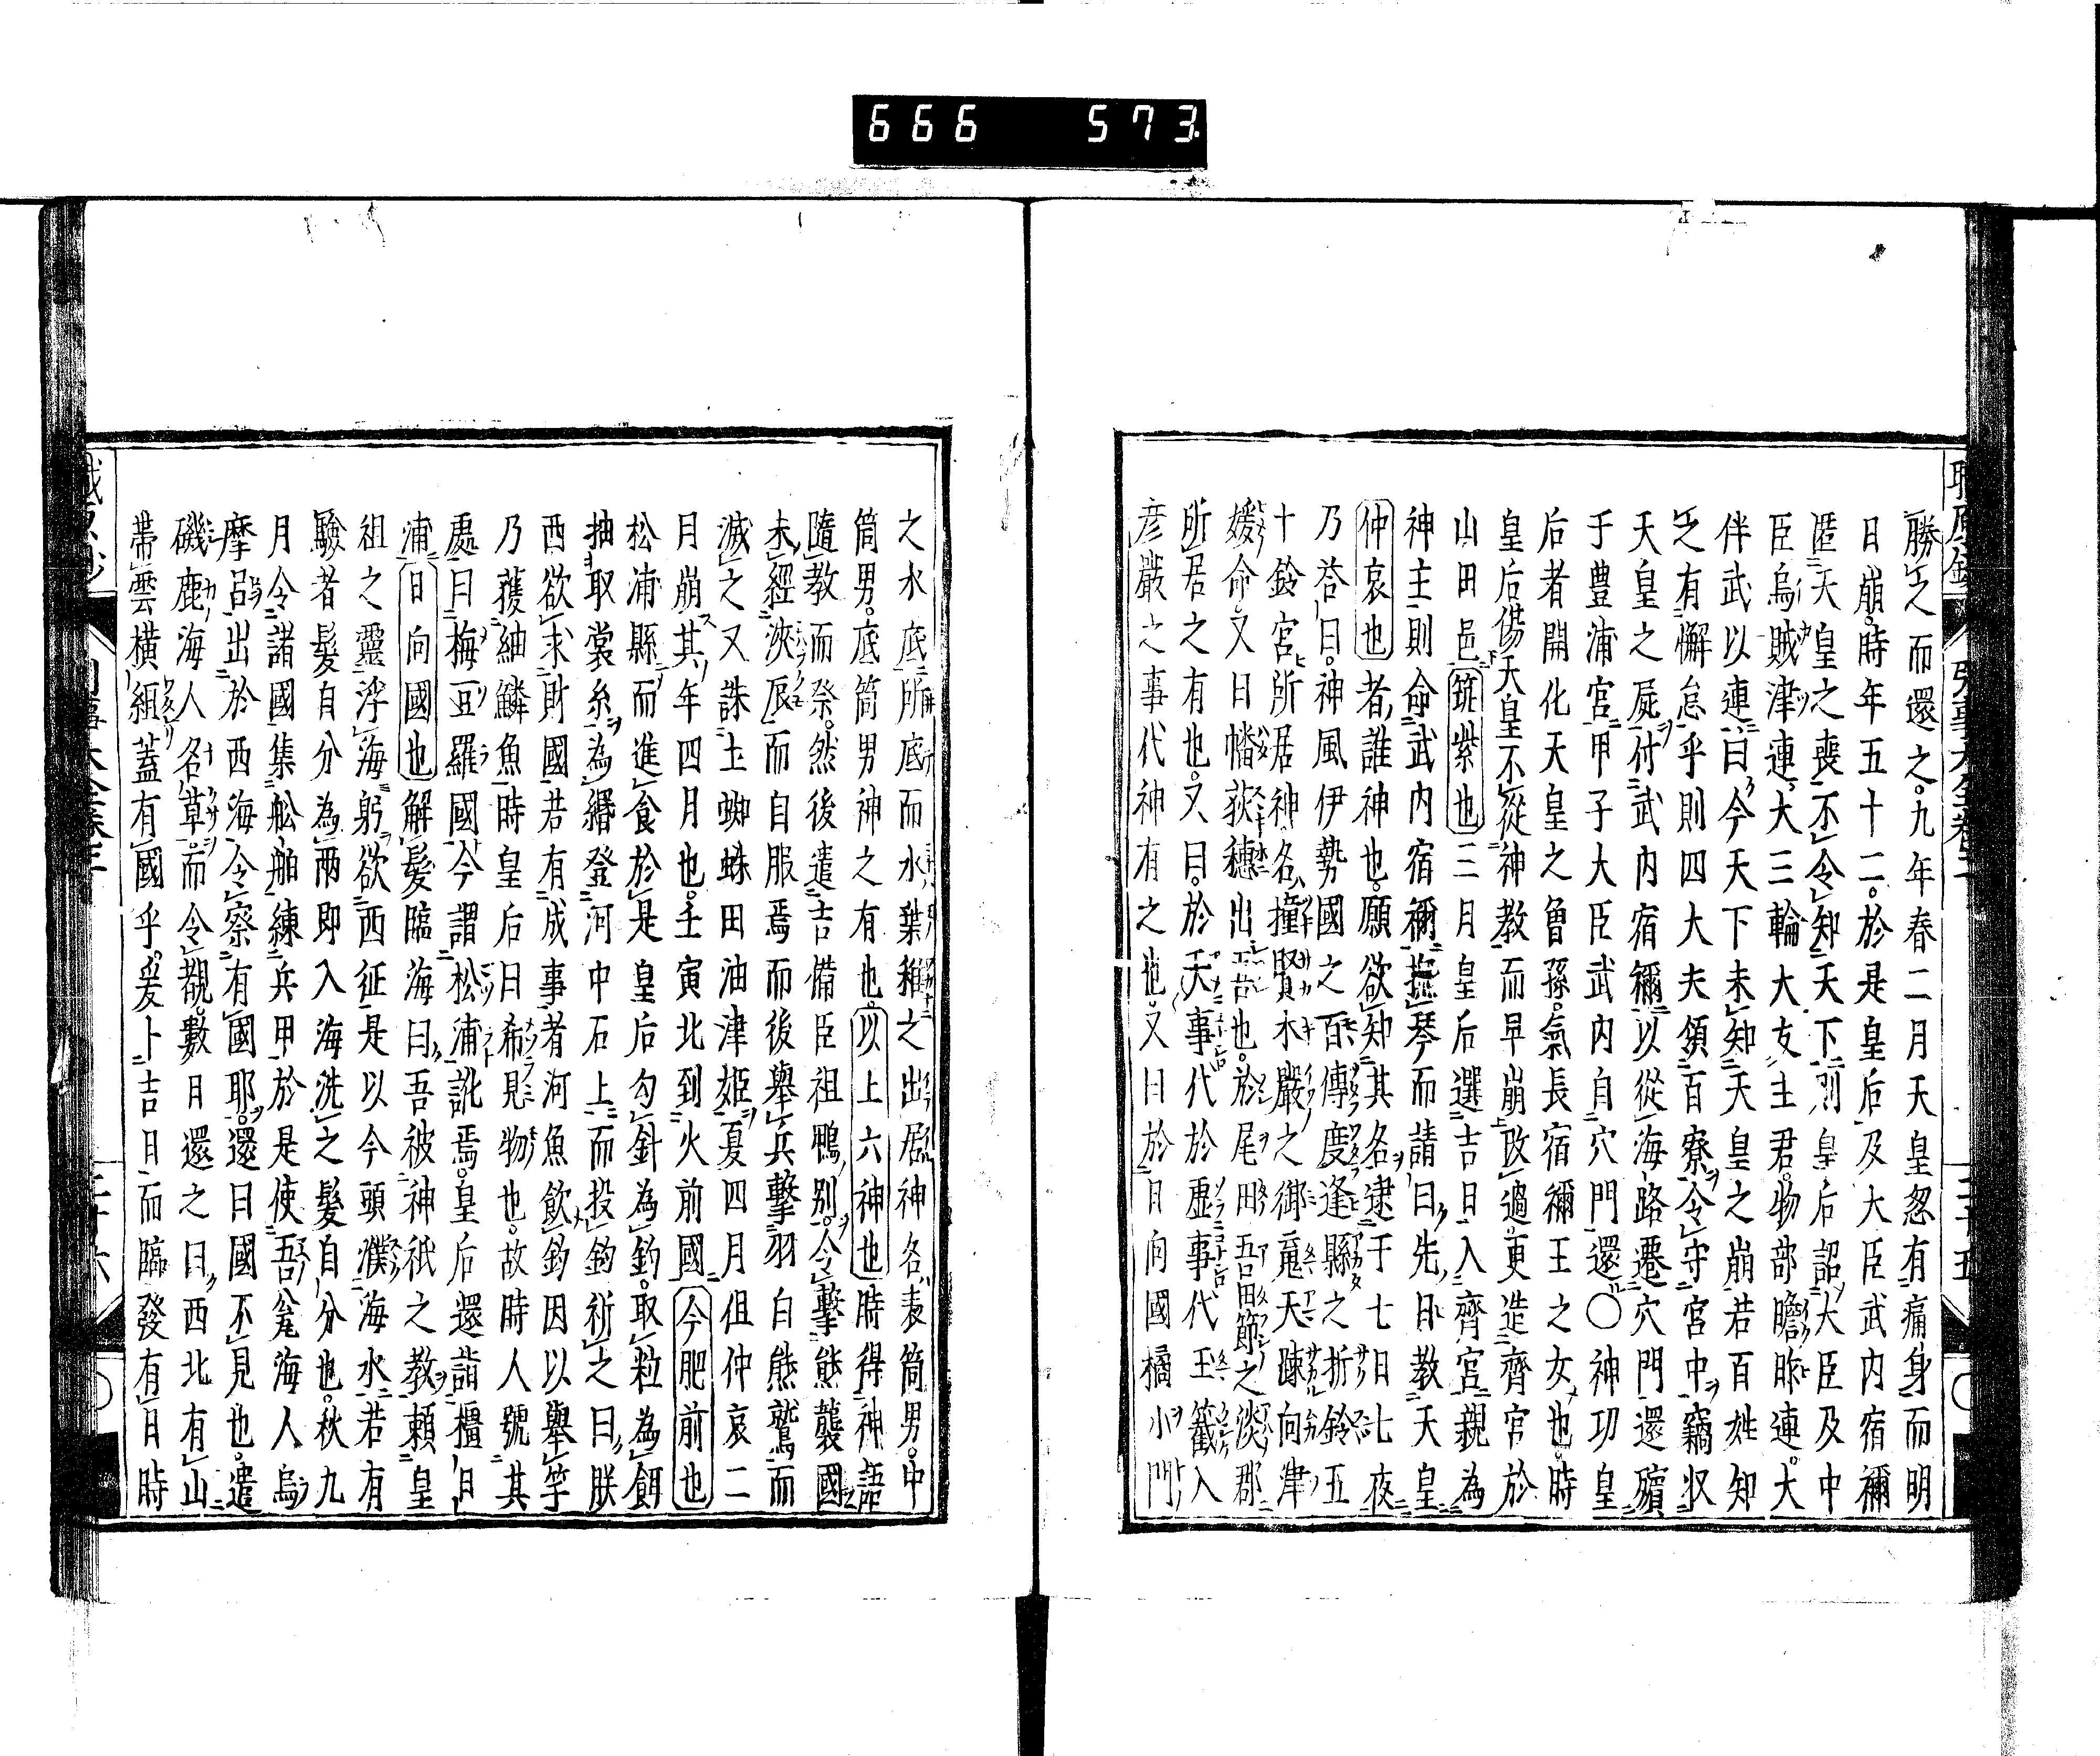 666 573
勝之而還之。九年春二月天皇忽有痛身而明
日崩。時年五十二。於是皇后及大臣武内宿禰
匿天皇之喪不令知天下則皇后詔大臣及中
臣烏賊津連大三輪大友主君。物部膽咋連。大
伴武以連曰今天下未知天皇之崩若百姓知
之有懈怠乎則四大夫領百寮令守宮中竊収
天皇之屍付武内宿禰以從海路遷穴門還殯
于豊浦宮甲子大臣武内自穴門還○神功皇
后者開化天皇之曾孫。氣長宿禰王之女也。時
皇后傷天皇不從神教而早崩改過更造齊宮於
山田邑筑紫也三月皇后選吉日入齊宮親為
神主則命武内宿禰撫琴而請曰先日教天皇
仲哀也者誰神也。願欲知其名逮于七日七夜
乃荅曰。神風伊勢國之百傳度逢縣之折鈴五
十鈴宮所居神名撞賢木嚴之御䰠天踈向津
媛命。又曰幡荻穂出吾也。於尾田吾田節之淡郡
所居之有也。又曰。於天事代於虚事代玉籤入
彦嚴之事代神有之也。又曰於日向國橘小門
之水底所底而水葉稚之出居神名表筒男。中
筒男。底筒男神之有也以上六神也時得神語
隨教而祭。然後遣吉備臣祖鴨別。令擊熊襲國
未經浹辰而自服焉而後舉兵擊羽白熊鷲而
滅之又誅土蜘蛛田油津姫夏四月但仲哀二
月崩其年四月也壬寅北到火前國今肥前也
松浦縣而進食於是皇后勾針為釣。取粒為餌
抽取裳糸為緡登。河中石上而投釣祈之曰朕
西欲求財國若有成事者河魚飲釣因以舉竿
乃獲細鱗魚時皇后曰希見物也。故時人號其
處曰梅豆羅國今謂松浦訛焉。皇后還詣橿日
浦日向國也解髪臨海曰吾被神祇之教頼皇
祖之靈浮海躬欲西征是以今頭濮海水若有
驗者髪自分為兩即入海洗之髪自分也。秋九
月令諸國集舩舶練兵甲於是使吾瓮海人烏
摩呂出於西海令察有國耶。還曰國不見也。遣
磯鹿海人名草。而令覩。數日還之曰西北有山
帶雲横絙蓋有國乎。爰卜吉日而臨發有日時